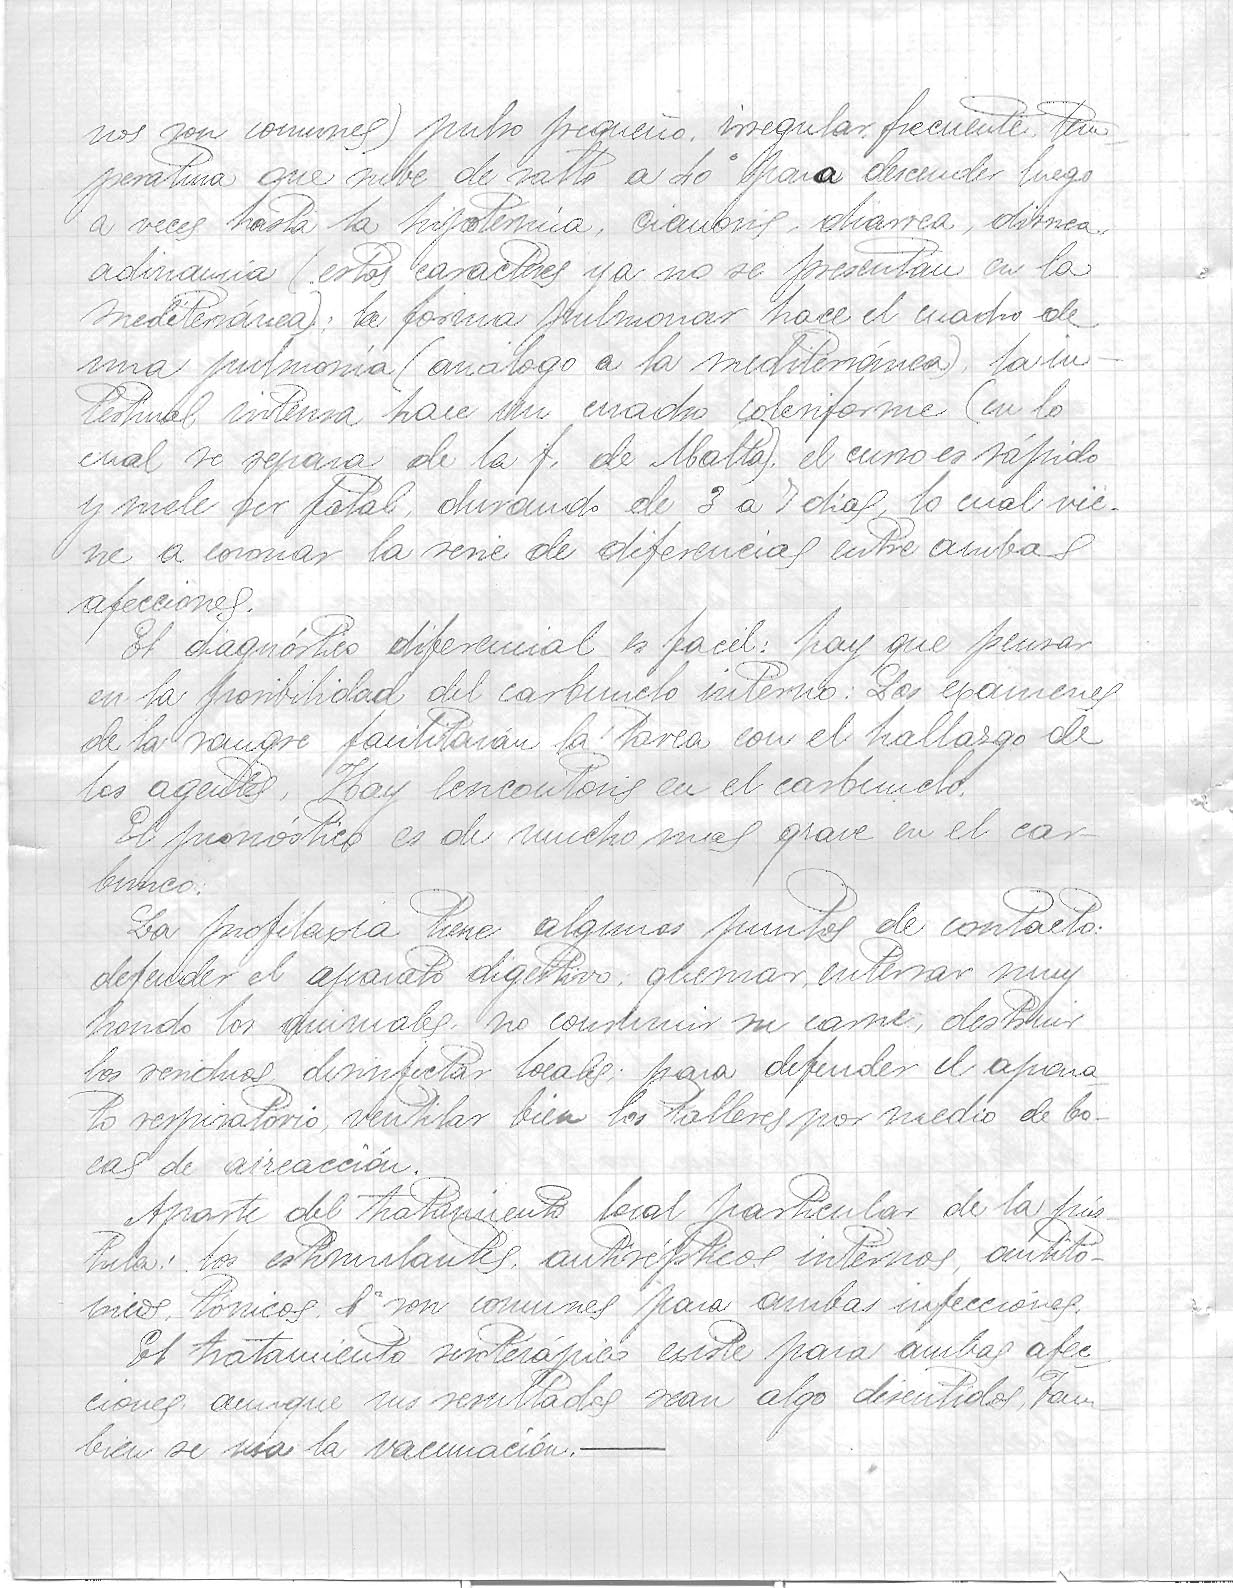 nos son comunes) pulso pequeño, irregular, frecuente, tem-
peratura que sube de salto a 40° para descender luego
a veces hasta la hipotermia, cianosis, diarrea, disnea,
adinamia (estos caracteres ya no se presentan en la
mediterránea); la forma pulmonar hace el cuadro de
una pulmonía (análogo a la mediterránea), la in-
testinal intensa hace un cuadro coleriforme (en lo
cual se separa de la f. de Malta), el curso es rápido
y suele ser fatal, durando de 3 a 7 dias, lo cual vie-
ne a coronar la serie de diferencias entre ambas
afecciones.
El diagnóstico diferencial es facil: hay que pensar
en la posibilidad del carbunclo interno: Los examenes
de la sangre facilitarán la tarea con el hallazgo de
los agentes. Hay leucocitosis en el carbunclo.
El pronóstico es de mucho mas grave en el car-
bunco.
La profilaxia tiene algunos puntos de contacto:
defender el aparato digestivo; quemar, enterrar muy
hondo los animales, no consumir su carne, destruir
los residuos, desinfectar locales; para defender el apara-
to respiratorio, ventilar bien los talleres por medio de bo-
cas de aireacción.
Aparte del tratamiento local particular de la pús-
tula: los estimulantes, antisépticos internos, antitó-
xicos, tónicos, &ª son comunes para ambas infecciones.
El tratamiento seroterápico existe para ambas afec-
ciones aunque sus resultados sean algo discutidos. Tam-
bien se usa la vacunación.